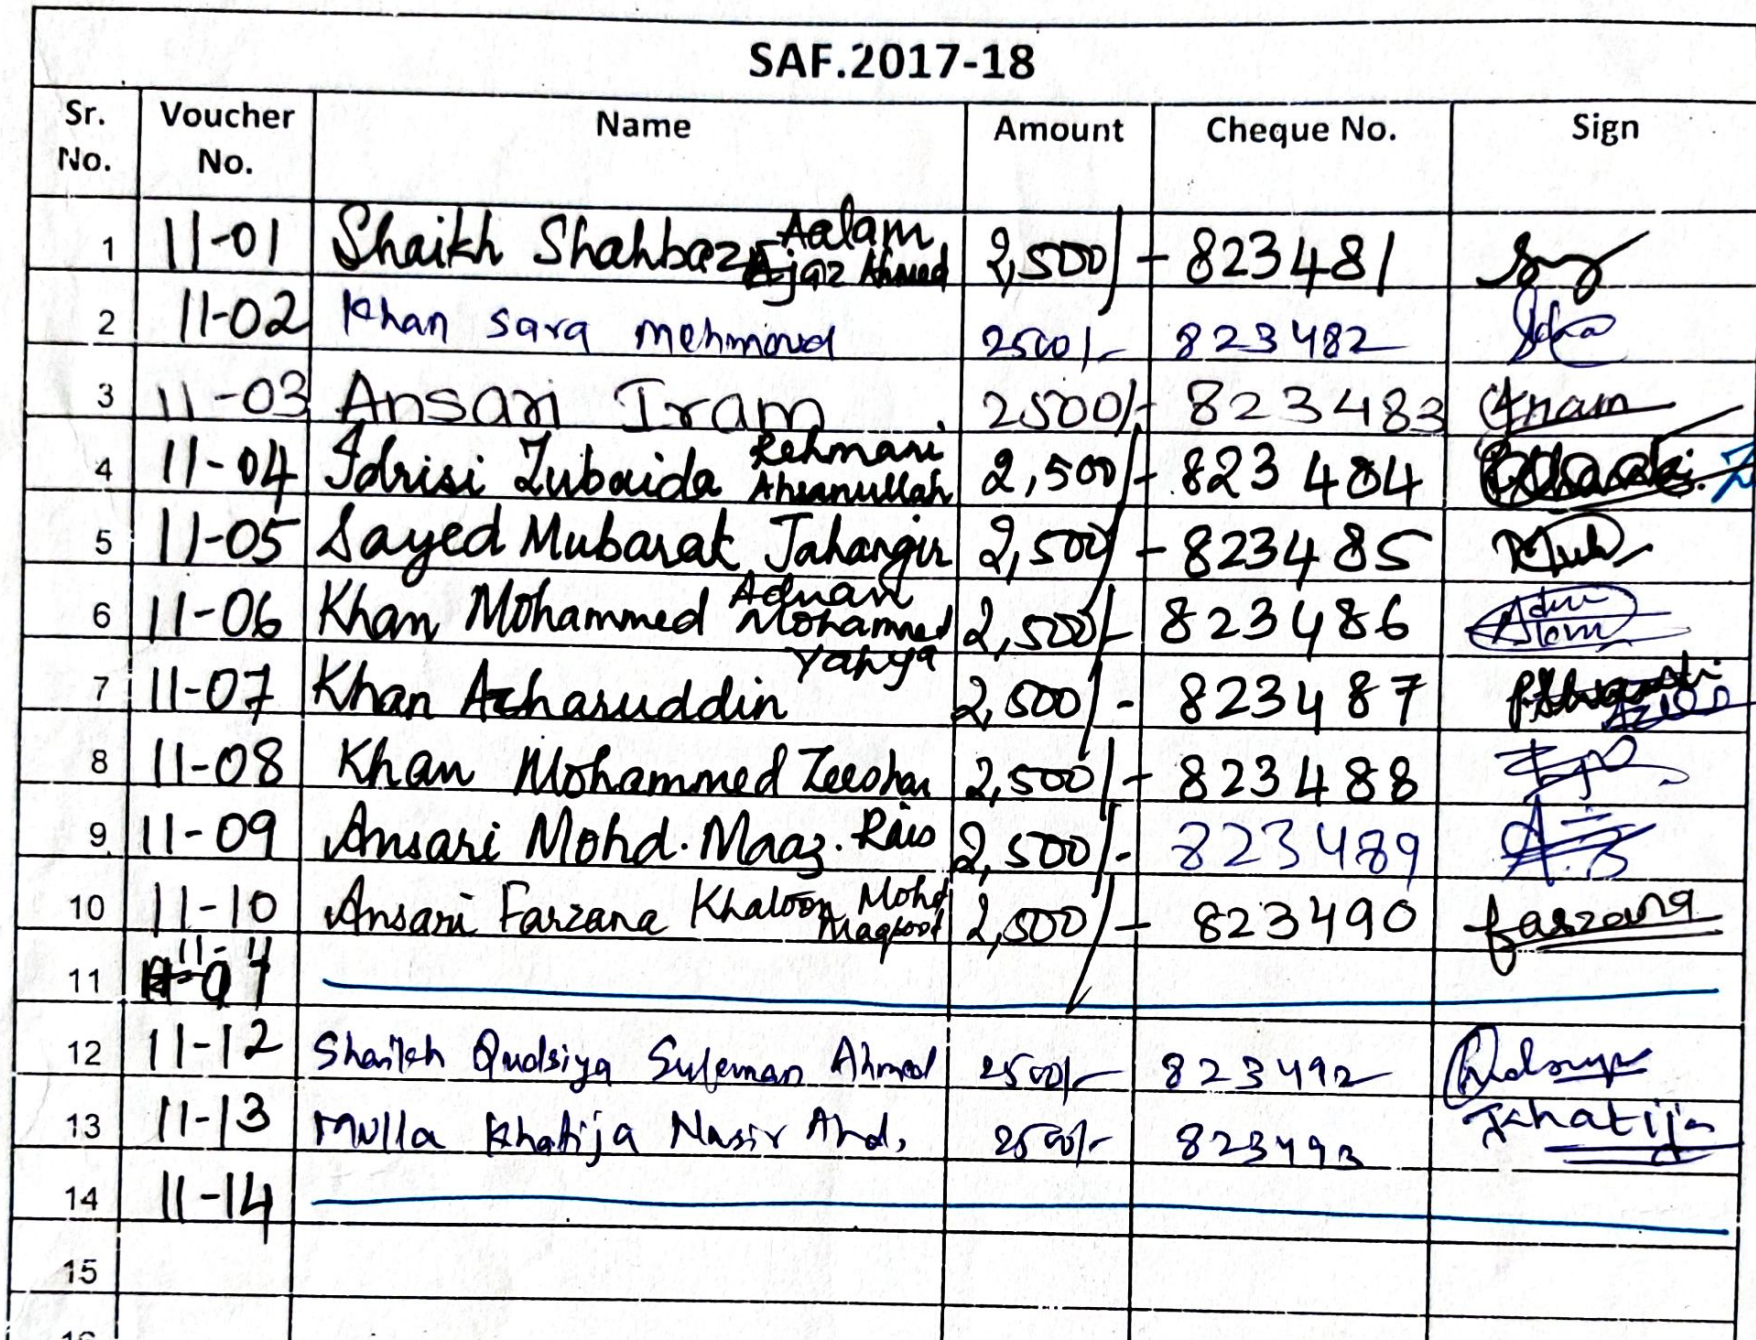 SAF.2017-18
Sr. No. Voucher No. Name Amount Cheque No. Sign
1 11-01 Shaikh Shahbaz Aalam Ajaz Ahmed 2,500/- 823481
2 11-02 Khan Sara Mehmood 2500/- 823482
3 11-03 Ansari Iram 2500/- 823483
4 11-04 Idrisi Zubaida Rehmani Ahsanullah 2,500/- 823484
5 11-05 Sayed Mubarak Jahangir 2,500/- 823485
6 11-06 Khan Mohammed Adnan Mohammed Yahya 2,500/- 823486
7 11-07 Khan Azharuddin 2,500/- 823487
8 11-08 Khan Mohammed Zeeshan 2,500/- 823488
9 11-09 Ansari Mohd. Maaz. Rais 2,500/- 823489
10 11-10 Ansari Farzana Khatoon Mohd Maqbool 2,500/- 823490 farzana
11 11-11
12 11-12 Shaikh Qudsiya Suleman Ahmed 2500/- 823492
13 11-13 Mulla Khatija Nasir Ahd, 2500/- 823493 Khatija
14 11-14
15
16